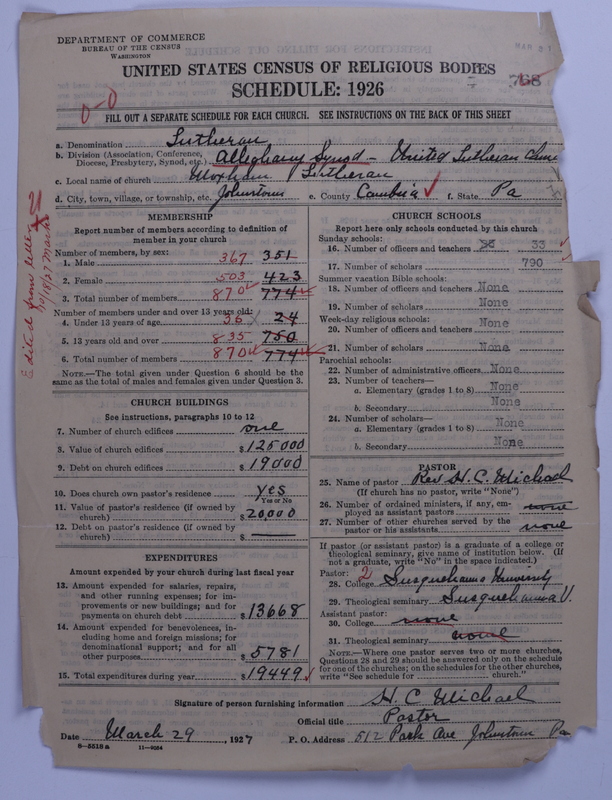 DEPARTMENT OF COMMERCE
BUREAU OF THE CENSUS
WASHINGTON
UNITED STATES CENSUS OF RELIGIOUS BODIES
SCHEDULE: 1926
768
0-0
FILL OUT A SEPARATE SCHEDULE FOR EACH CHURCH. SEE INSTRUCTIONS ON THE BACK OF THIS SHEET
a. Denomination Lutheran
b. Division (Association, Conference, Diocese, Presbytery, Synod, etc.) Alleghany Synod - United Lutheran
c. Local name of church Moxham Lutheran
d. City, town, village, or township, etc. Johnstown e. County Cambria f. State Pa
Edited from letter 10/18/27
MEMBERSHIP
Report number of members according to definition of member in your church
Number of members, by sex:
1. Male 367 351
2. Female 503 423
3. Total number of members 870 774
Number of members under and over 13 years old:
4. Under 13 years of age 35 24
5. 13 years old and over 835 750
6. Total number of members 870 774
NOTE.—The total given under Question 6 should be the same as the total of males and females given under Question 3.
CHURCH BUILDINGS
See instructions, paragraphs 10 to 12
7. Number of church edifices one
8. Value of church edifices $ 125000
9. Debt on church edifices $ 19000
10. Does church own pastor's residence yes
Yes or No
11. Value of pastor's residence (if owned by church) $ 20,000
12. Debt on pastor's residence (if owned by church) $ —
EXPENDITURES
Amount expended by your church during last fiscal year
13. Amount expended for salaries, repairs, and other running expenses; for improvements or new buildings; and for payments on church debt $ 13668
14. Amount expended for benevolences, including home and foreign missions; for denominational support; and for all other purposes $ 5781
15. Total expenditures during year $ 19449
CHURCH SCHOOLS
Report here only schools conducted by this church
Sunday schools:
16. Number of officers and teachers 33
17. Number of scholars 790
Summer vacation Bible schools:
18. Number of officers and teachers None
19. Number of scholars None
Week-day religious schools:
20. Number of officers and teachers None
21. Number of scholars None
Parochial schools:
22. Number of administrative officers None
23. Number of teachers—
a. Elementary (grades 1 to 8) None
b. Secondary None
24. Number of scholars—
a. Elementary (grades 1 to 8) None
b. Secondary None
PASTOR
25. Name of pastor Rev H. C. Michael
(If church has no pastor, write "None")
26. Number of ordained ministers, if any, employed as assistant pastors none
27. Number of other churches served by the pastor or his assistants none
If pastor (or assistant pastor) is a graduate of a college or theological seminary, give name of institution below. (If not a graduate, write "No" in the space indicated.)
Pastor: 2
28. College Susquehanna University
29. Theological seminary Susquehanna U.
Assistant pastor:
30. College none
31. Theological seminary none
NOTE.—Where one pastor serves two or more churches, Questions 28 and 29 should be answered only on the schedule for one of the churches; on the schedules for the other churches, write "See schedule for ........ church."
Signature of person furnishing information H. C. Michael
Official title Pastor
Date March 29, 1927 P. O. Address 512 Park Ave Johnstown Pa
8—5518a 11—9554